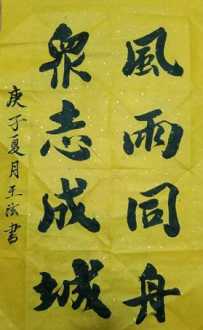 風雨同舟
衆志成城
庚子夏月王泓書